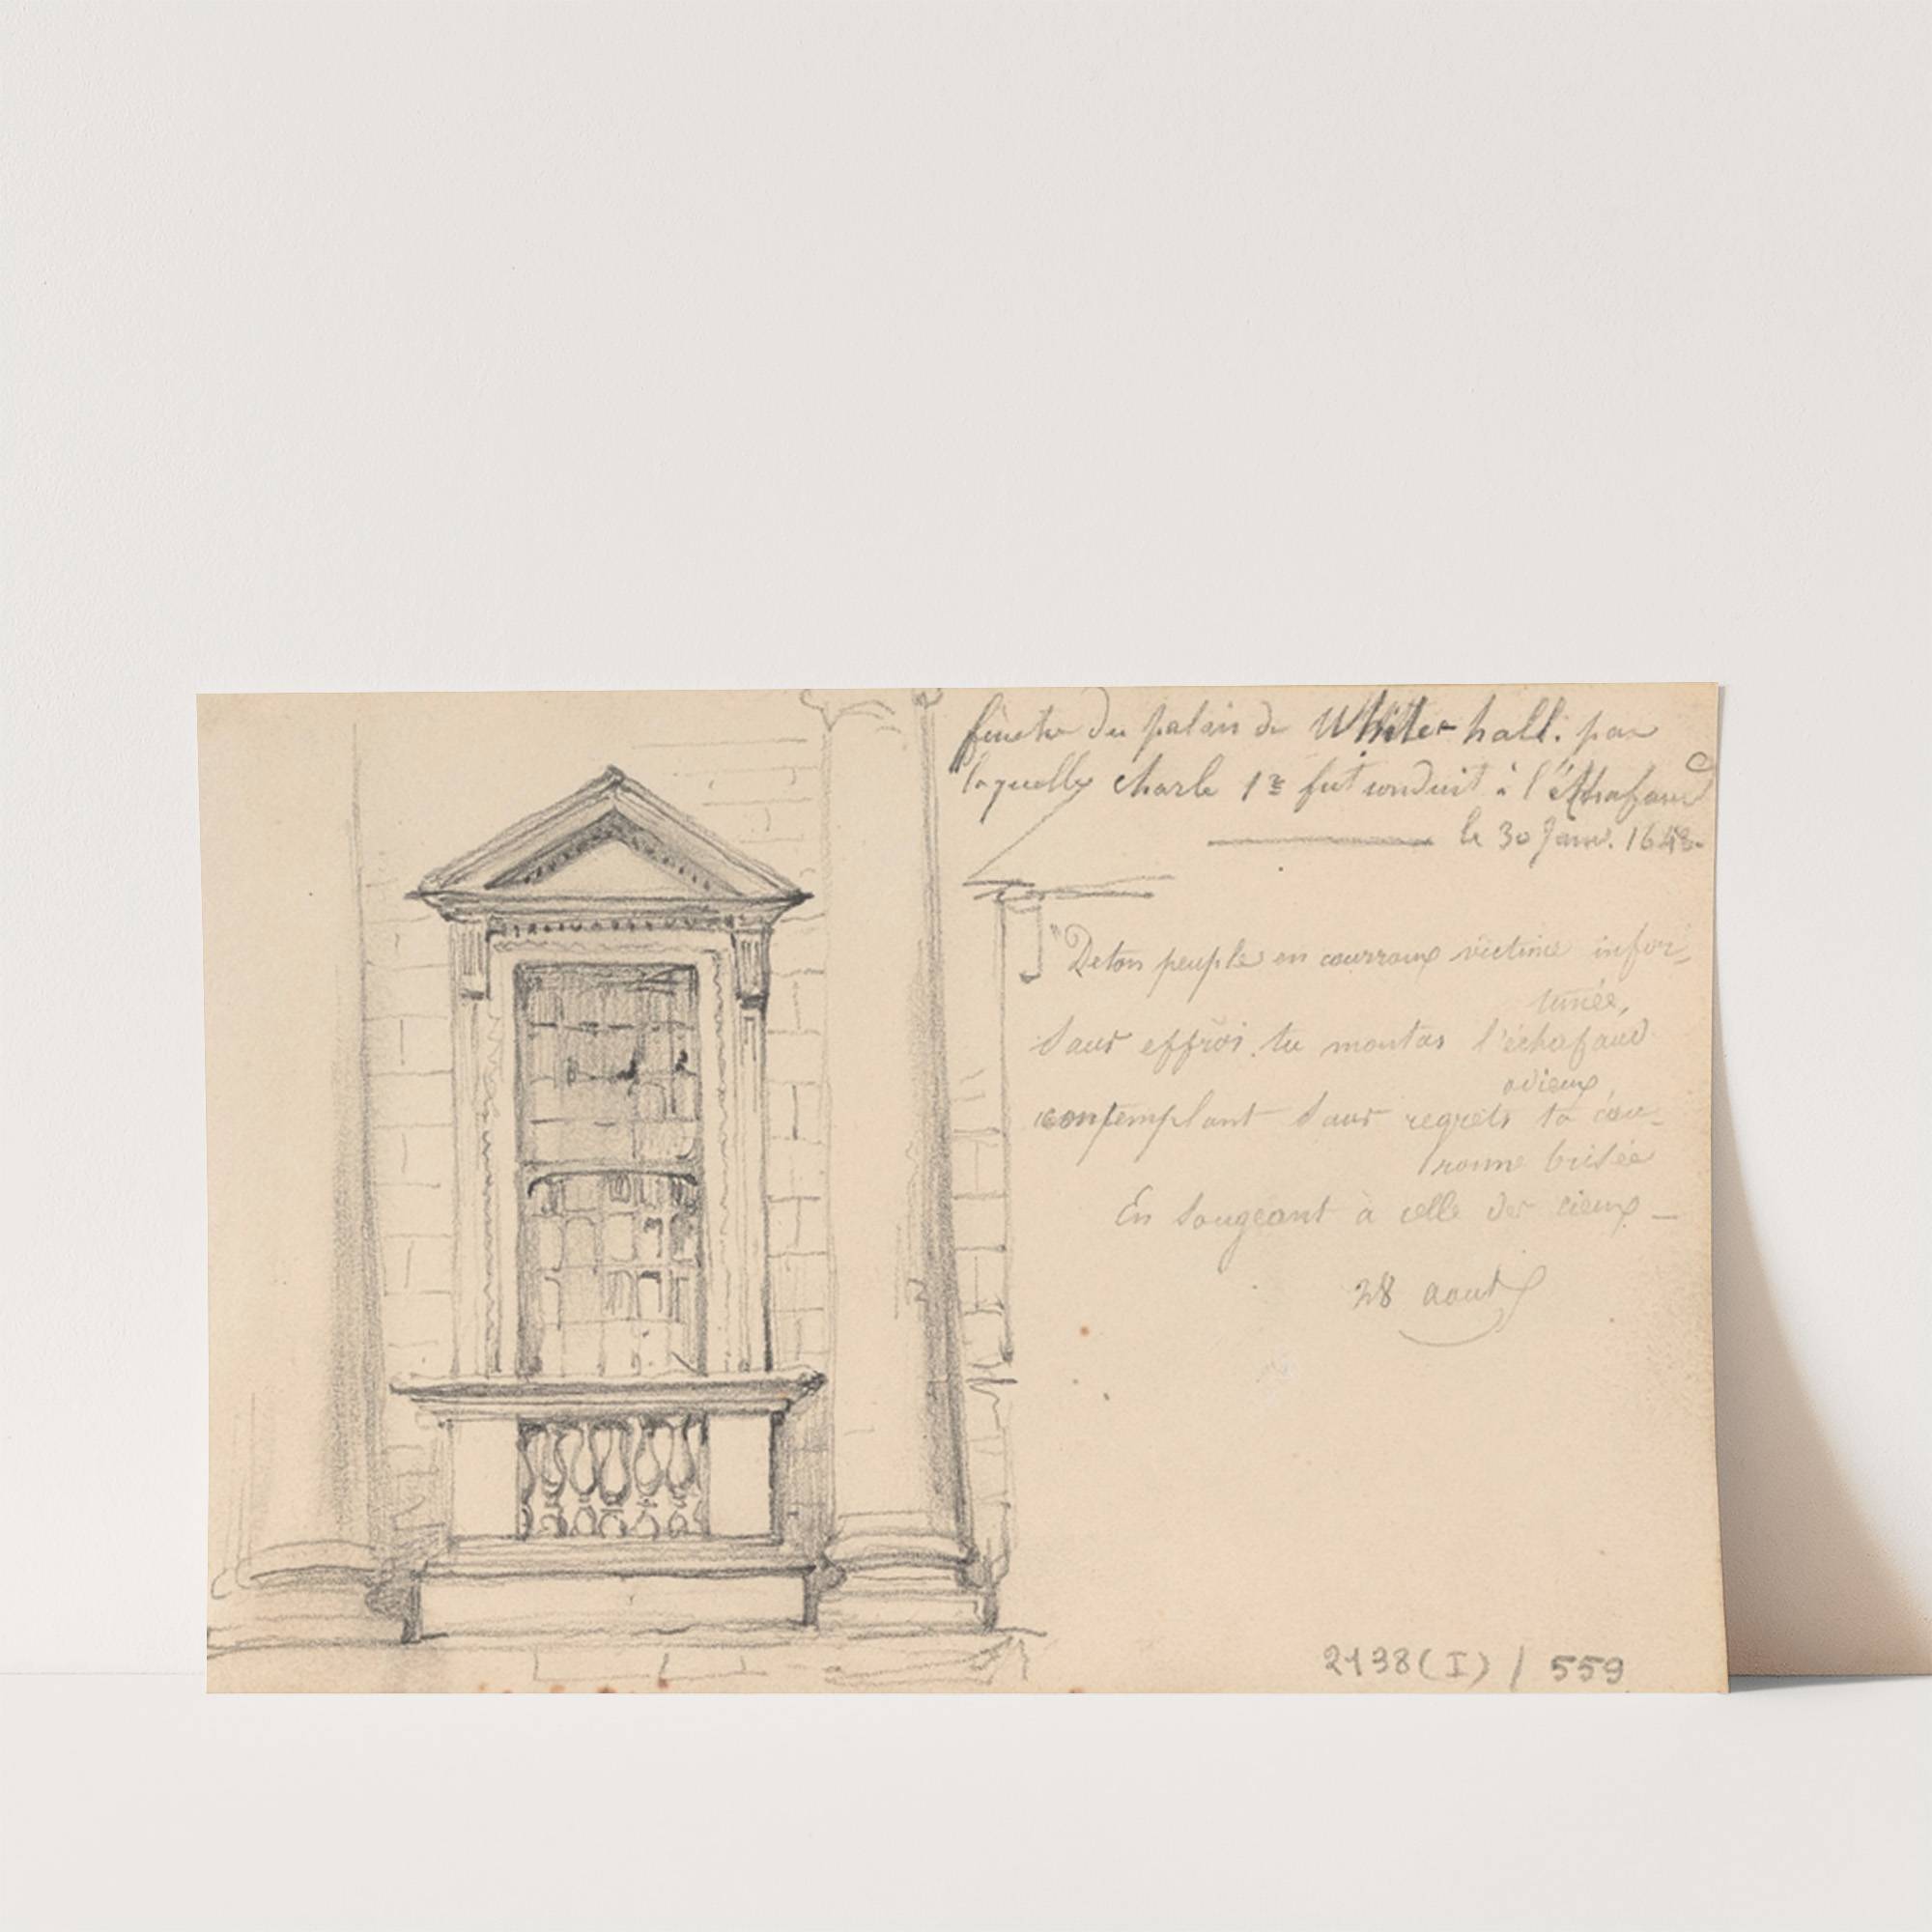 fenetre du palais de White-hall. par
laquelle Charle 1er fut conduit à l'Echafaud
le 30 Janv. 1648.
"De ton peuple en courroux victime infor-
tunée,
Sans effroi tu montas l'échafaud
odieux,
contemplant sans regrets ta cou-
ronne brisée
En songeant à celle des cieux —
28 aout
2138(I) / 559